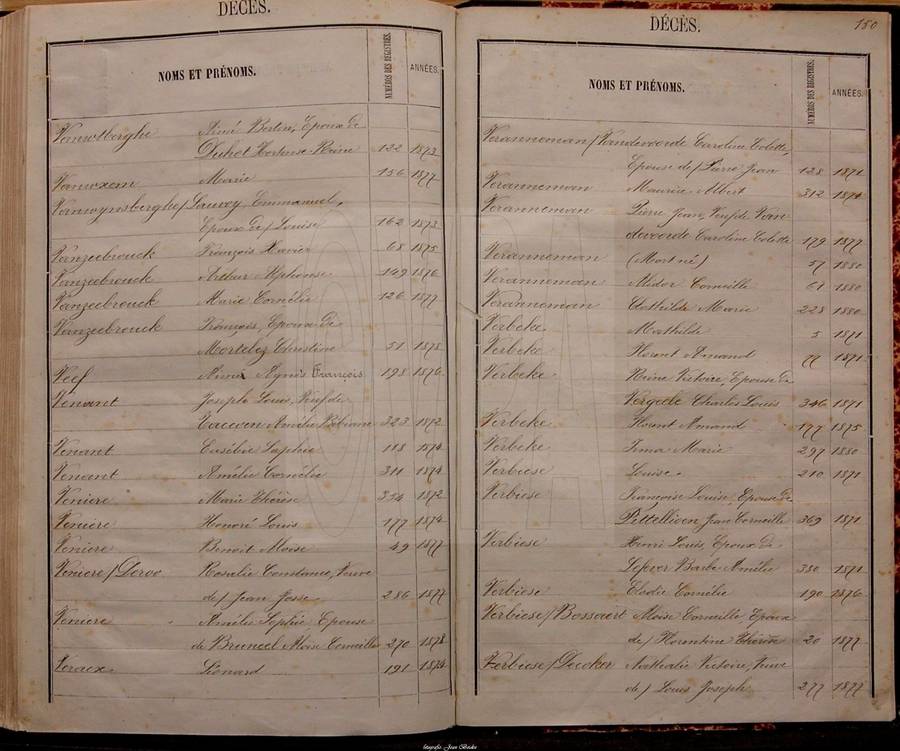 DÉCÈS.
NOMS ET PRÉNOMS. NUMÉROS DES REGISTRES. ANNÉES.
Vanwtberghe Aimé Bertin, Epoux de
Duhot Hortense Reine 122 1873
Vanwxem Marie 156 1877
Vanwynsberghe / Lauwoy, Emmanuel,
Epoux de / Louise 162 1873
Vanzeebrouck François Xavier 68 1875
Vanzeebrouck Arthur Alphonse 149 1876
Vanzeebrouck Marie Cornélie 126 1877
Vanzeebrouck François, Epoux de
Mortelez Christine 51 1878
Veef Aimé Agnès François 198 1876
Venant Joseph Louis, Veuf de
Amélie Bibiane 323 1872
Venant Eusébie Sophie 118 1874
Venant Amélie Cornélie 311 1874
Veniere Marie Thérèse 354 1872
Veniere Honoré Louis 177 1874
Veniere Benoit Moïse 49 1877
Veniere / Deroo Rosalie Constance, Veuve
de / Jean Josse 286 1877
Veniere Amélie Sophie Epouse
de Bruneel Moïse Corneille 270 1878
Veraex Léonard 191 1874
DÉCÈS. 180
NOMS ET PRÉNOMS. NUMÉROS DES REGISTRES. ANNÉES.
Veranneman / Vandevoorde Caroline Colette,
Epouse de / Pierre Jean 128 1871
Veranneman Maurice Albert 312 1874
Veranneman Pierre Jean, Veuf de Van-
devoorde Caroline Colette 179 1877
Veranneman (Mort né) 57 1880
Veranneman Médor Corneille 61 1880
Veranneman Clothilde Marie 228 1880
Verbeke Mathilde 5 1871
Verbeke Florent Amand 77 1871
Verbeke Reine Victoire, Epouse de
Vergule Charles Louis 346 1871
Verbeke Florent Amand 177 1875
Verbeke Irma Marie 297 1880
Verbiese Louise 210 1871
Verbiese Françoise Louise, Epouse de
Pittellioen Jean Corneille 369 1871
Verbiese Henri Louis, Epoux de
Lepver Barbe Amélie 380 1871
Verbiese Elodie Cornélie 190 1876
Verbiese / Bossaert Moïse Corneille, Epoux
de / Florentine Thérèse 20 1877
Verbiese / Decker Nathalie Victoire, Veuve
de / Louis Joseph 277 1877
fotografie Jean Beeke